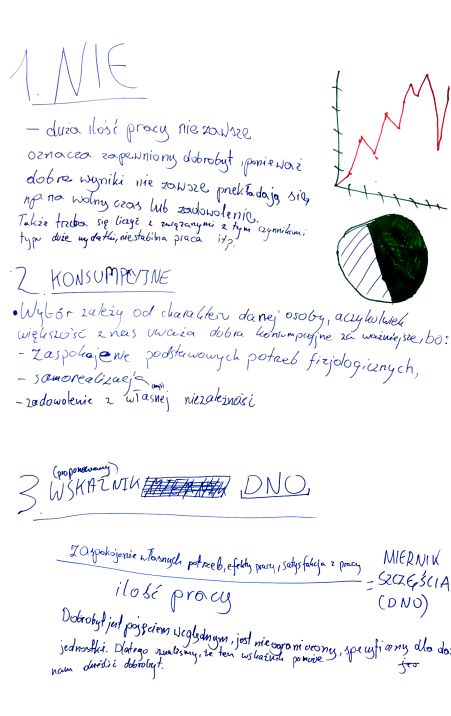 1. NIE
– duża ilość pracy nie zawsze
oznacza zapewniony dobrobyt, ponieważ
dobre wyniki nie zawsze przekładają się
np. na wolny czas lub zadowolenie.
Także trzeba się liczyć z związanymi z tym czynnikami
typu duże wydatki, niestabilna praca itp.
2. KONSUMPCYJNE
• Wybór zależy od charakteru danej osoby, aczkolwiek
większość z nas uważa dobra konsumpcyjne za ważniejsze, bo:
– zaspokojenie podstawowych potrzeb fizjologicznych,
– samorealizacja
– zadowolenie z własnej niezależności
(proponowany)
3. WSKAŹNIK DNO
zaspokojenie własnych potrzeb, efekty pracy, satysfakcja z pracy
ilość pracy
= MIERNIK
SZCZĘŚCIA
(DNO)
Dobrobyt jest pojęciem względnym, jest nieograniczony, specyficzny dla
jednostki. Dlatego uznaliśmy, że ten wskaźnik pomoże
nam określić dobrobyt.